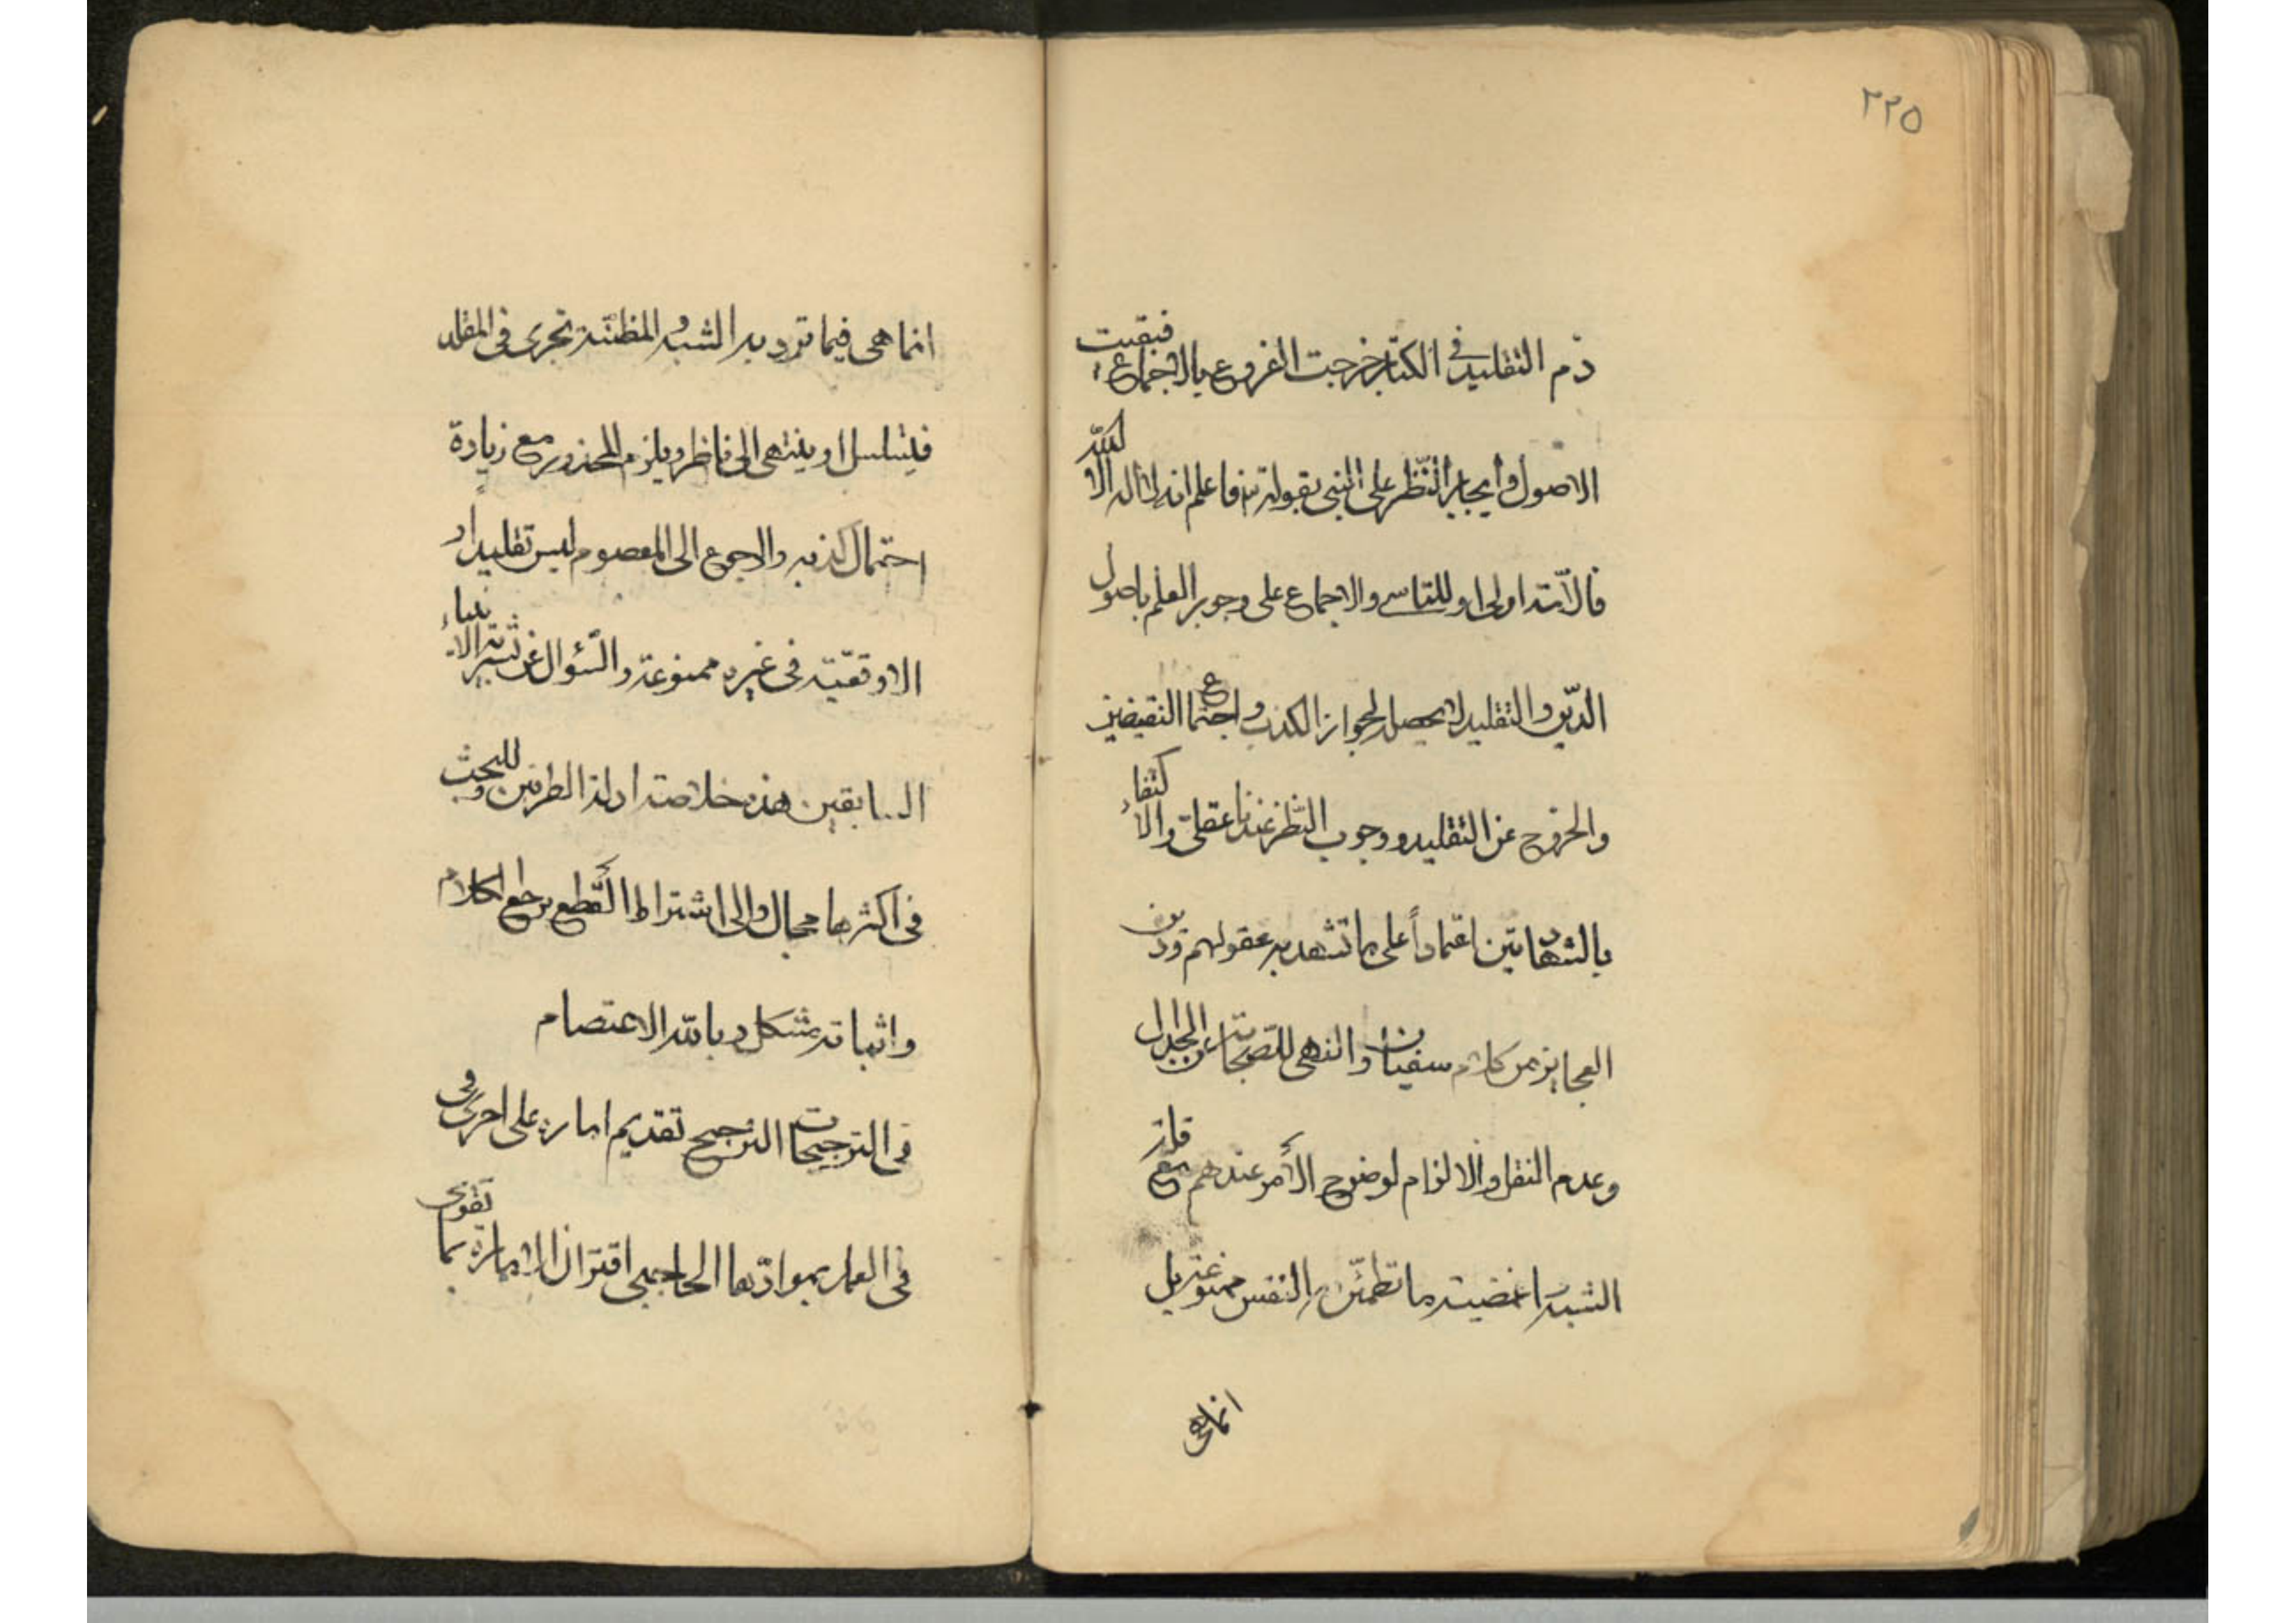 ٢٢٥
ذم التقليد في الكتاب خرجت الفروع بالاجماع فبقيت
الاصول وايجاب النظر على النبي بقوله تعالى فاعلم انه لا اله الا الله
فالامة اولى او للتاسي والاجماع على وجوب العلم باصول
الدين والتقليد لا يحصله لجواز الكذب واجتماع النقيضين
والخروج عن التقليد ووجوب النظر عندنا عقلي والاكتفاء
بالشهادتين اعتماداً على ما تشهد به عقولهم ودين
العجايز من كلام سفيان والنهي للصحابة عن الجدال
وعدم النقل والالزام لوضوح الأمر عندهم مع قلة
الشبه ما تطمئن به النفس ممنوعة بل
انما هي
انما هي فيما ترد به الشبه والمظنة تجري في المقلد
فيتسلسل او ينتهي الى ناظر ويلزم المحذور مع زيادة
احتمال كذبه والرجوع الى المعصوم ليس تقليدا و
الاوقعية في غيره ممنوعة والسؤال عن الانبياء
السابقين هذه خلاصة ادلة الطرفين وللبحث
في اكثرها مجال والى اشتراط القطع يرجع الكلام
واثباته مشكل وبالله الاعتصام
في الترجيحات الترجيح تقديم امارة على اخرى في
في العمل بمؤادها الحاجبي اقتران الامارة بما تقوى